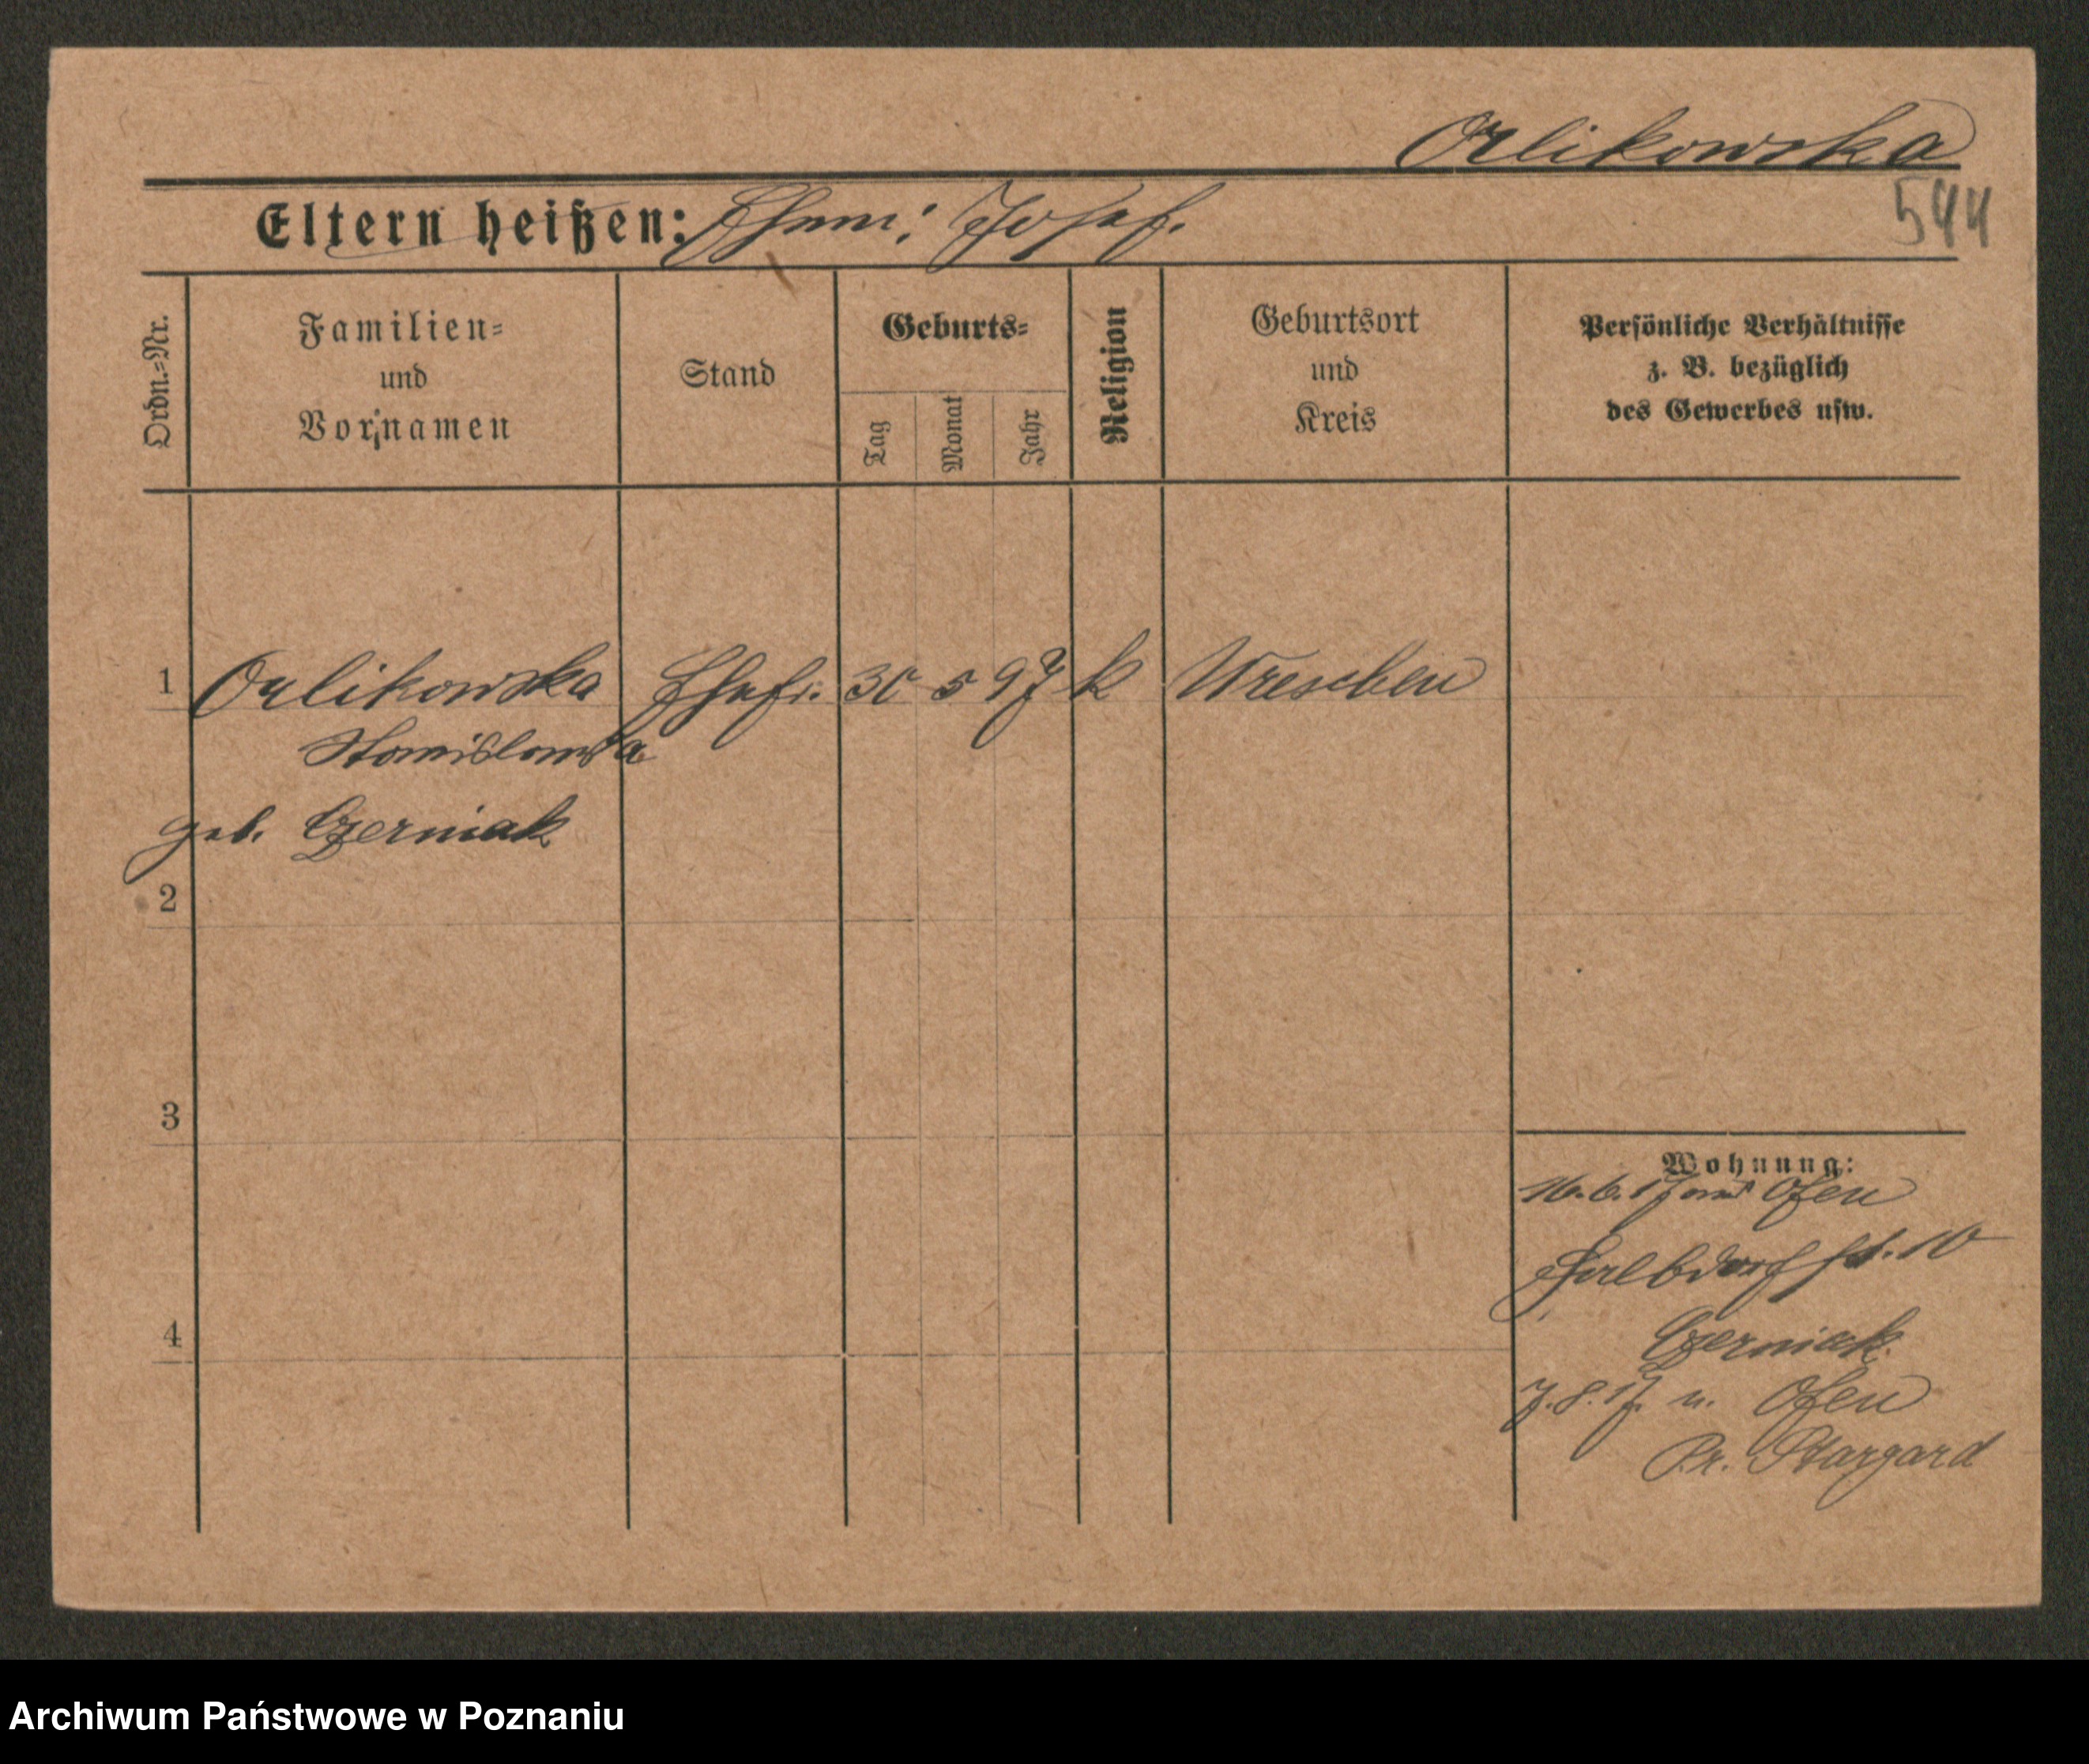 Orlikowska
544
Eltern heißen: Ehem: Josef.
Ordn.=Nr.
Familien=
und
Vornamen
Stand
Geburts=
Tag
Monat
Jahr
Religion
Geburtsort
und
Kreis
Persönliche Verhältnisse
z. B. bezüglich
des Gewerbes usw.
1 Orlikowska Ehefr. 30 5 97 k Wreschen
Stanislawa
geb. Czerniak
2
3
4
Wohnung:
16.6.17 Ofen
Halbdorfst. 10
Czerniak
7.8.17. n. Ofen
Pr. Stargard
Archiwum Państwowe w Poznaniu